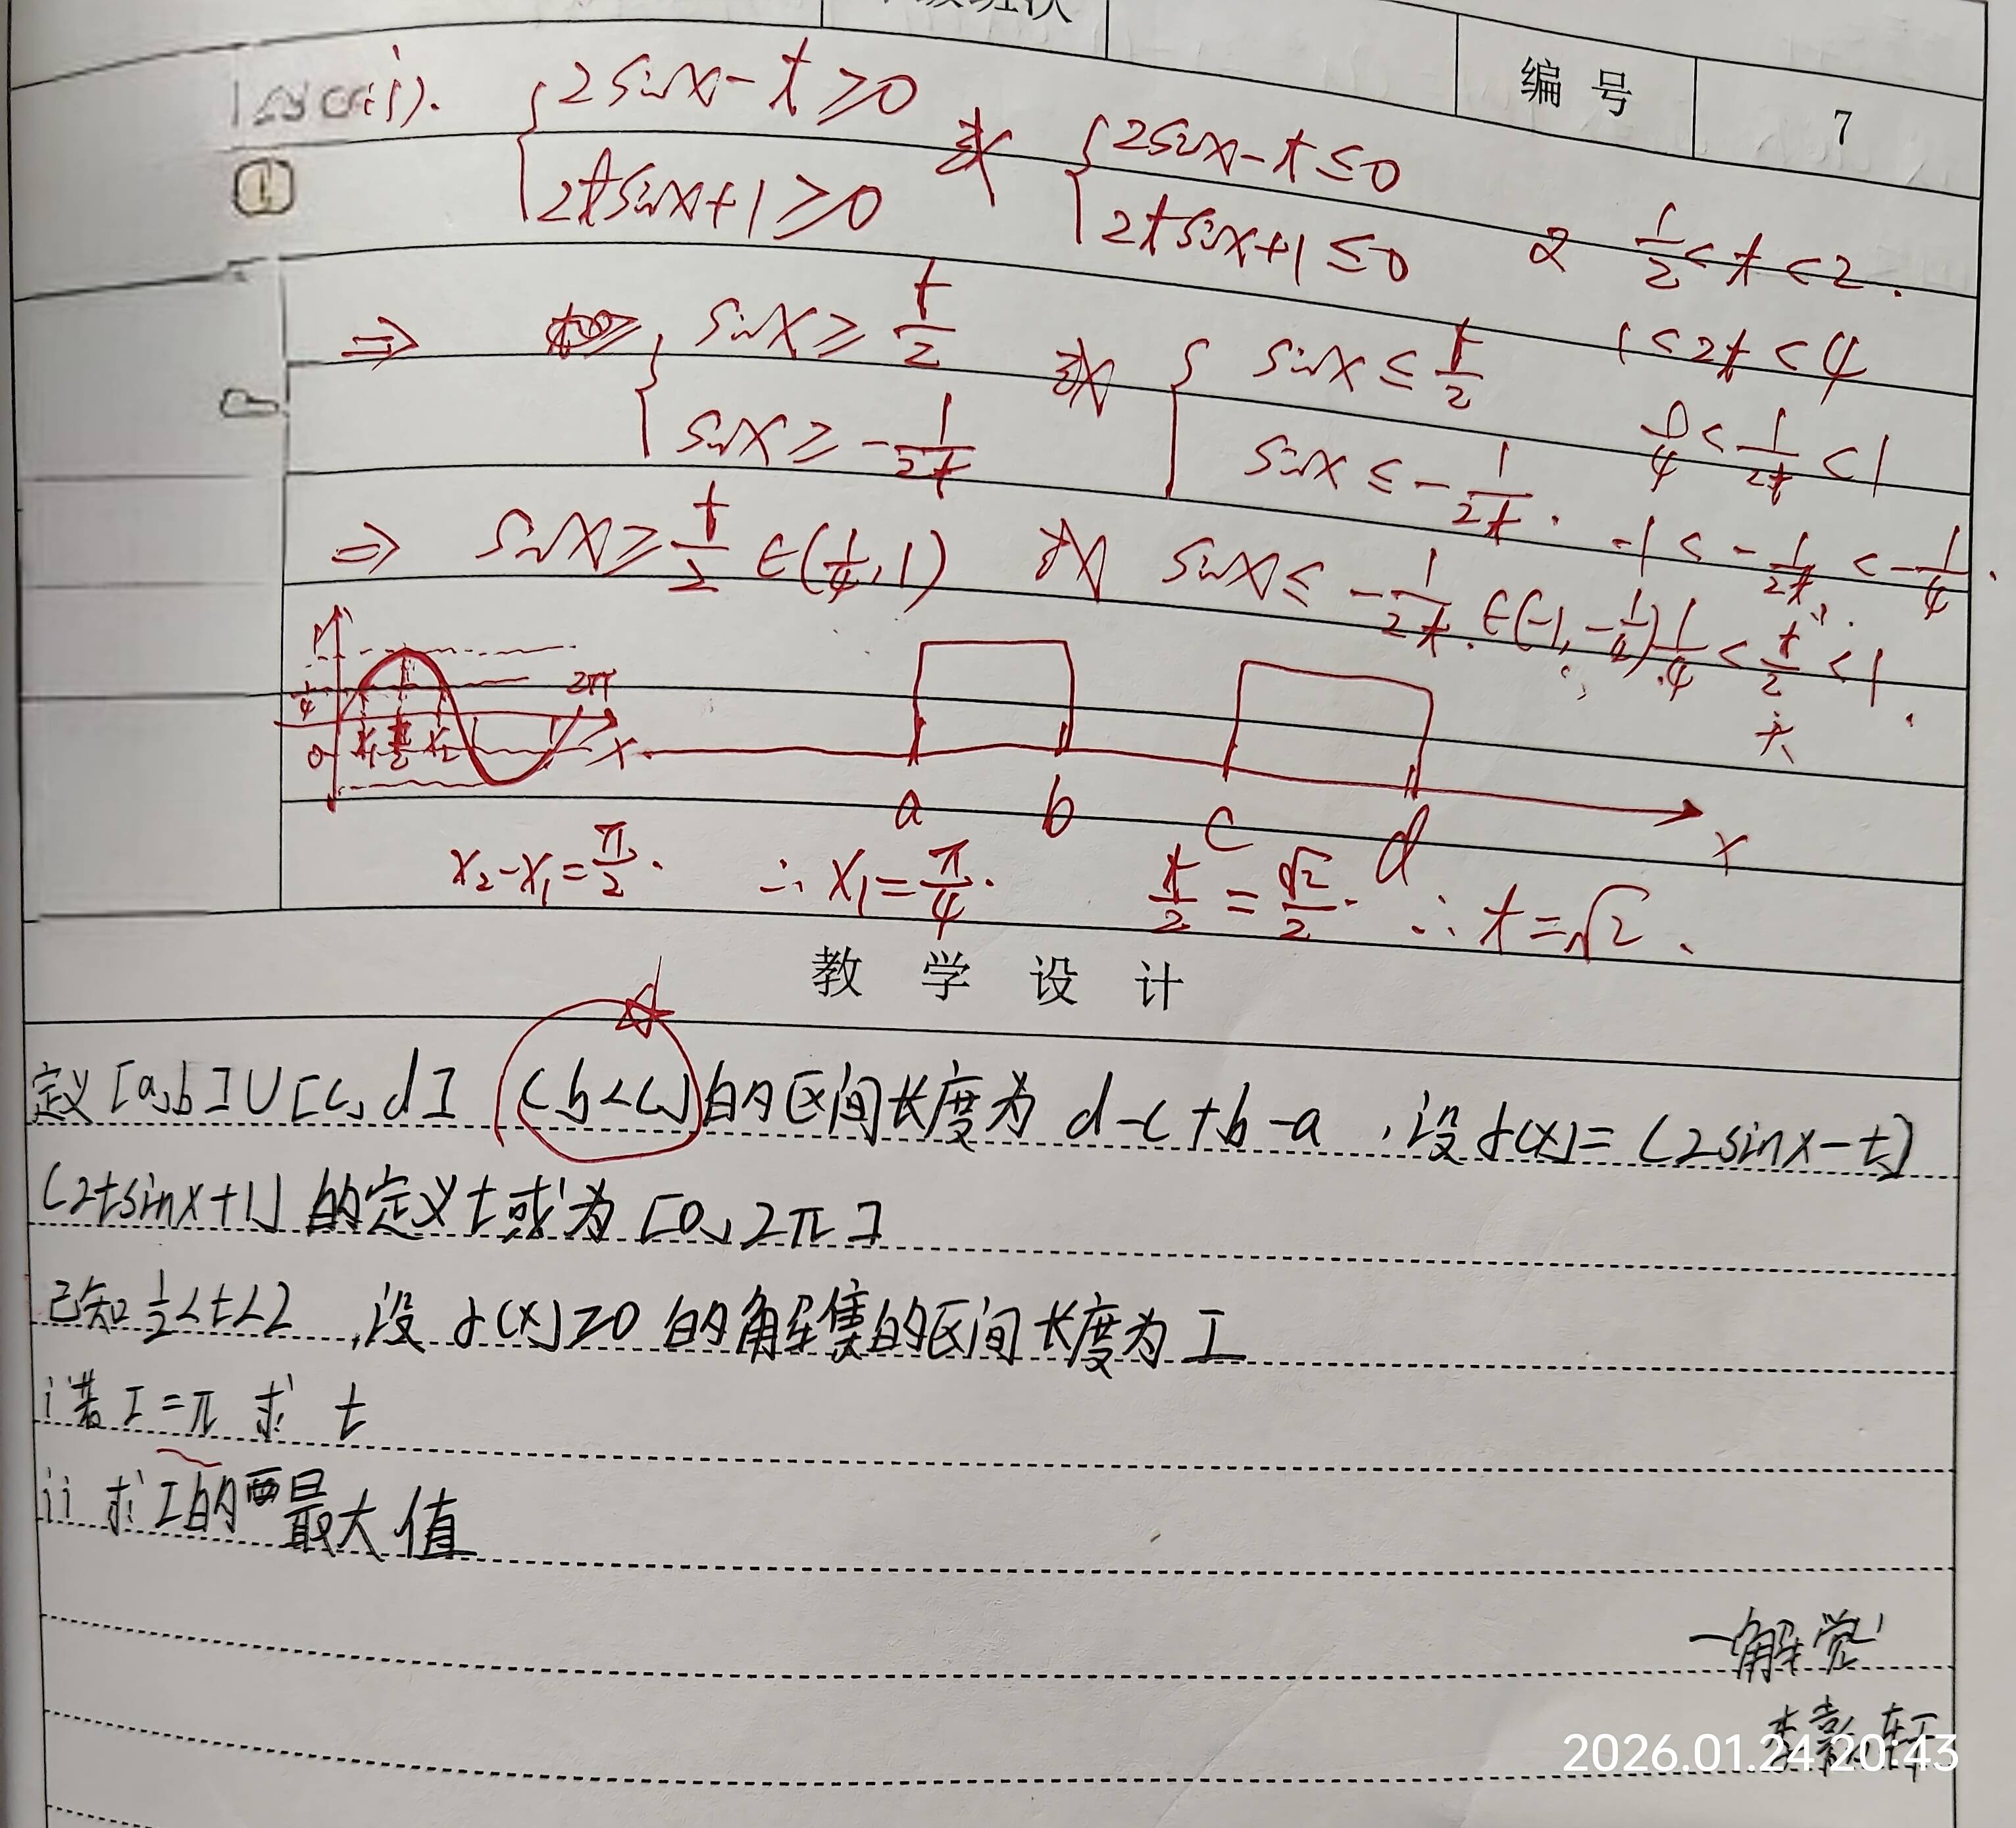 编号 7
(i). {2sinx-t≥0 2tsinx+1≥0 或 {2sinx-t≤0 2tsinx+1≤0
∵ 1/2<t<2.
1<2t<4
⇒ {sinx≥t/2 sinx≥-1/2t 或 {sinx≤t/2 sinx≤-1/2t.
1/4<1/2t<1
-1<-1/2t<-1/4.
⇒ sinx≥t/2∈(1/4,1) 或 sinx≤-1/2t.∈(-1,-1/4)
1/4<t/2<1.
1/4 0 x₁ π/2 x₂ 2π x
a b c d x
x₂-x₁=π/2. ∴x₁=π/4. t/2=√2/2. ∴t=√2.
教学设计
定义[a,b]∪[c,d] (b<c)的区间长度为 d-c+b-a ,设f(x)=(2sinx-t)
(2tsinx+1)的定义域为[0,2π]
已知1/2<t<2 ,设f(x)≥0的解集的区间长度为I
i若I=π求 t
ii 求I的最大值
2026.01.24 20:43